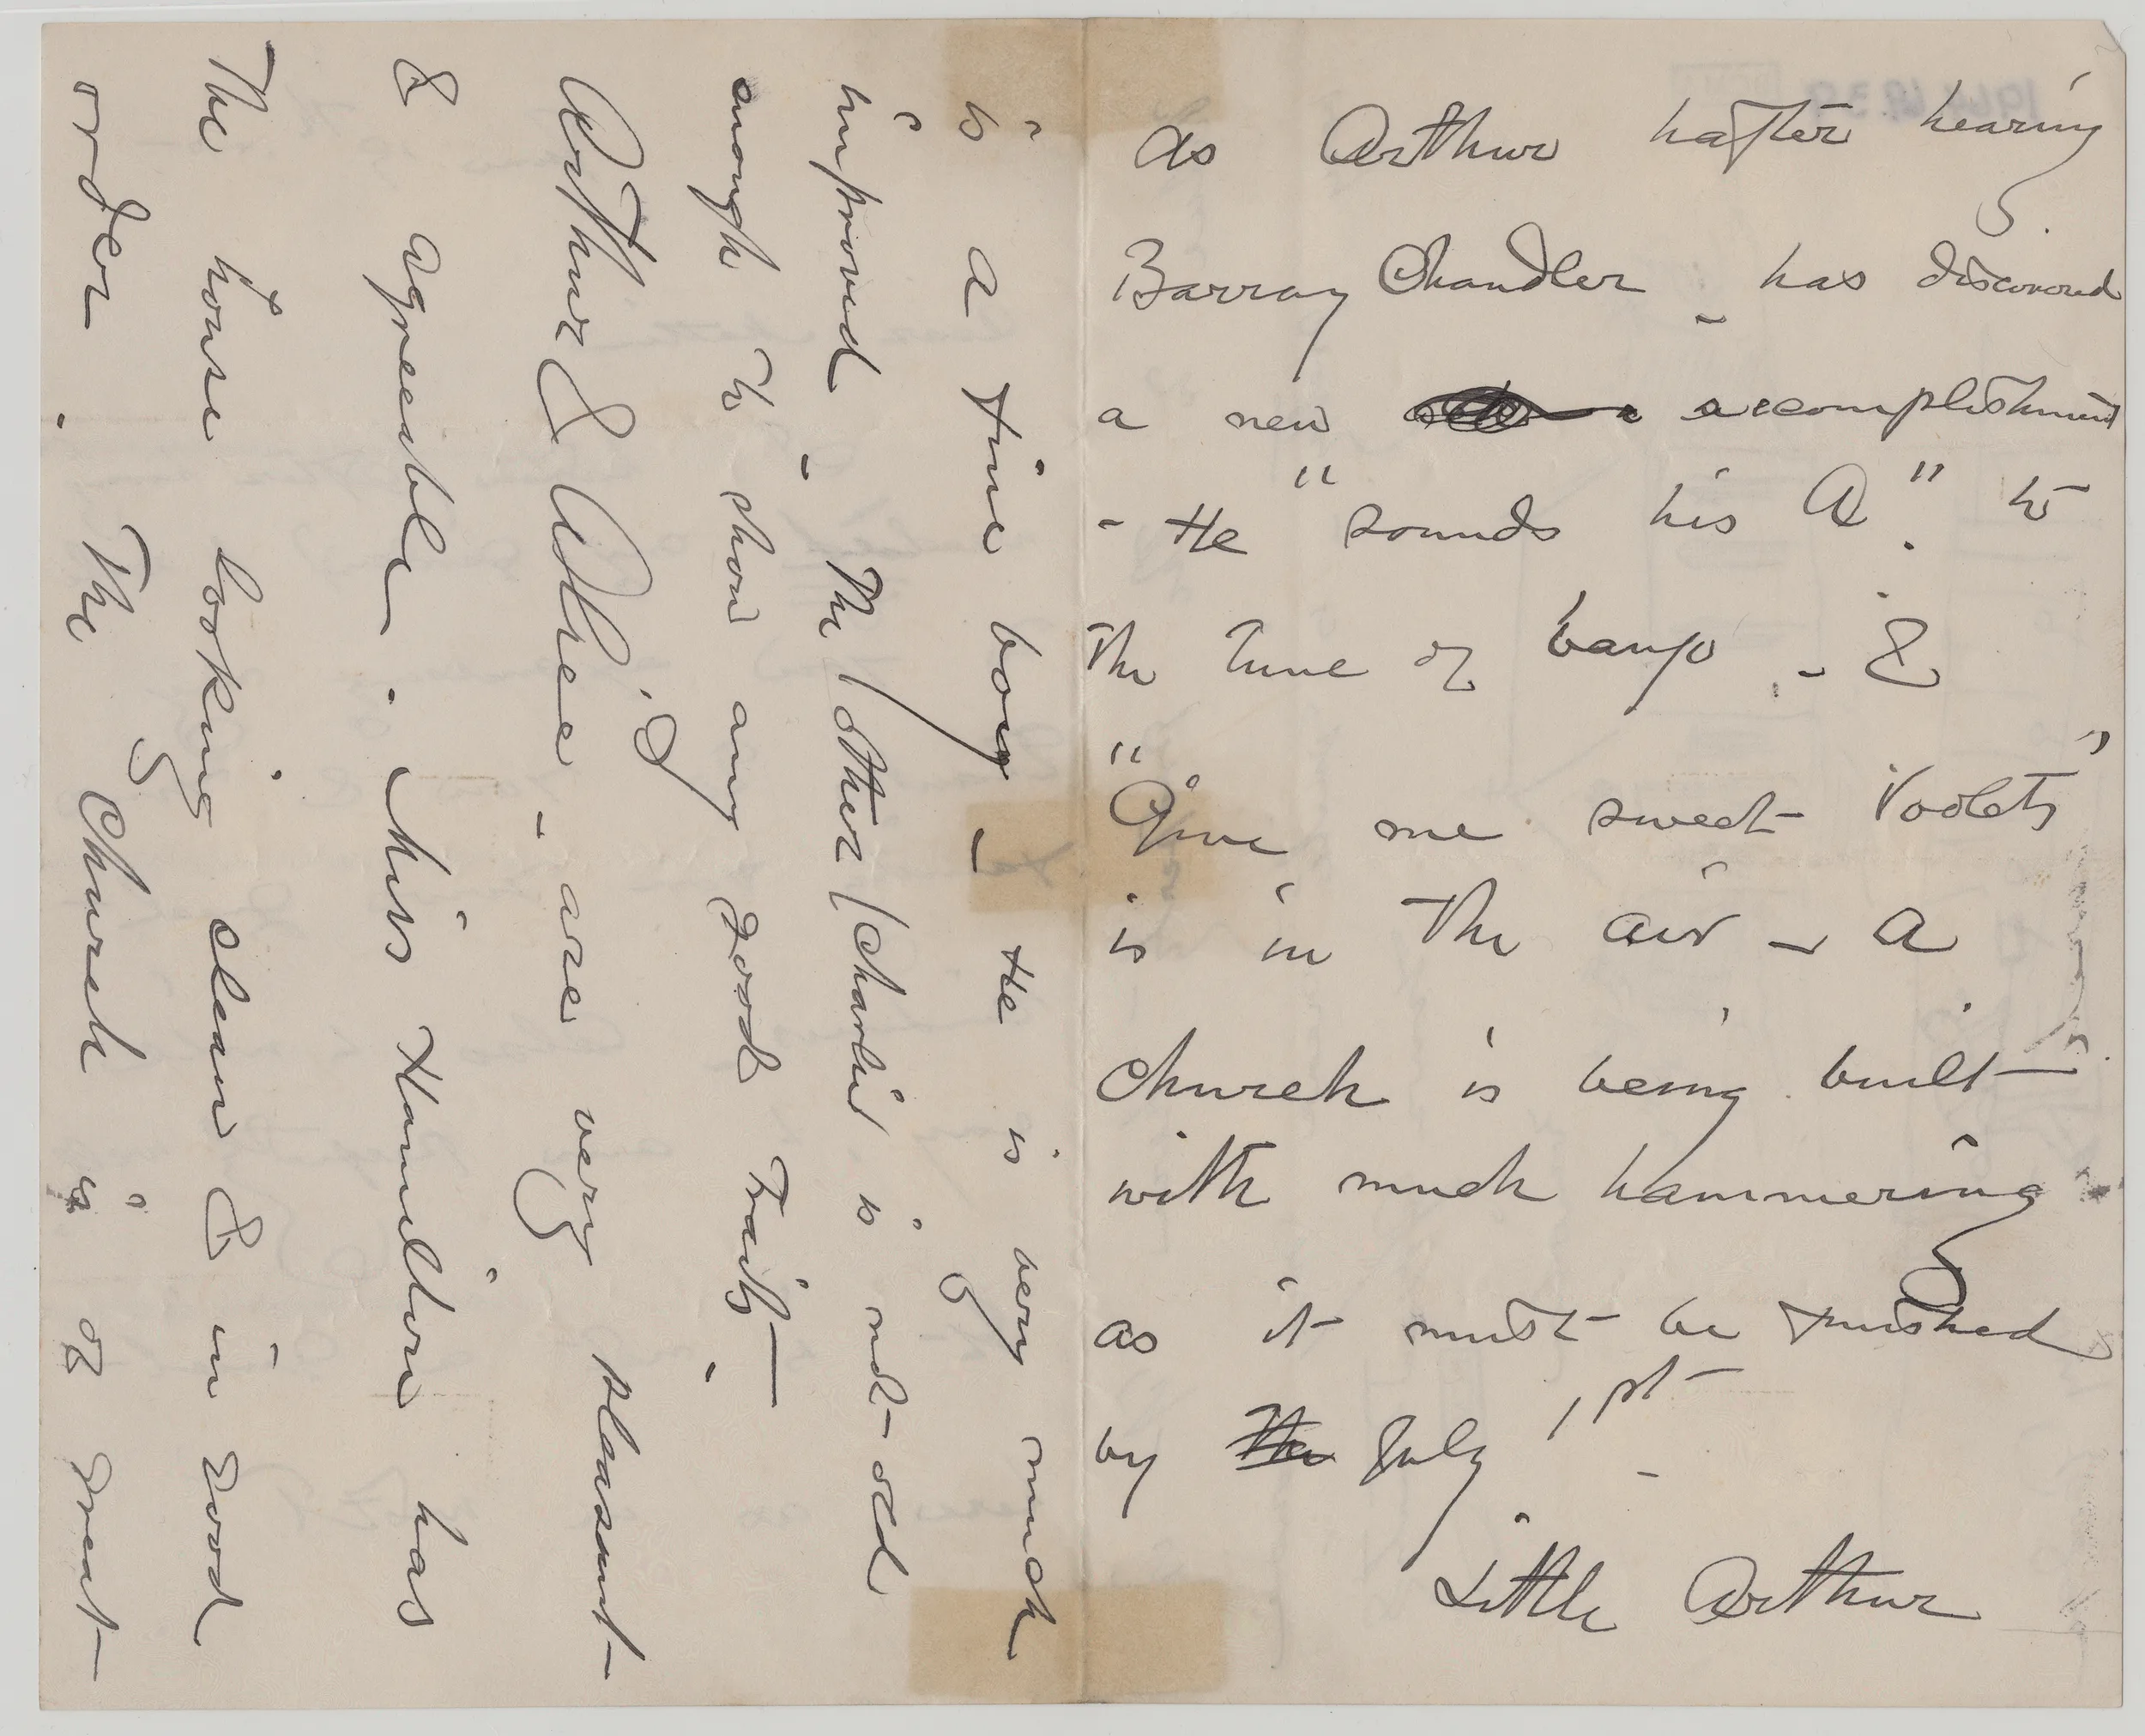 as Arthur hafter hearing
Barray Chandler - has discovered
a new accomplishment
- He "sounds his A." to
the tune of banjo - &
"Give me sweet Voolets"
is in the air - a
church is being built
with much hammering
as it must be finished
by the July 1st -
Little Arthur
is a fine boy - He is very much
improved - The other (Charlie) is not old
enough to show any good traits.
Arthur & Alice - are very pleasant
& agreeable - Miss Hamilton has
The house looking clean & in good
order. The Church is of great